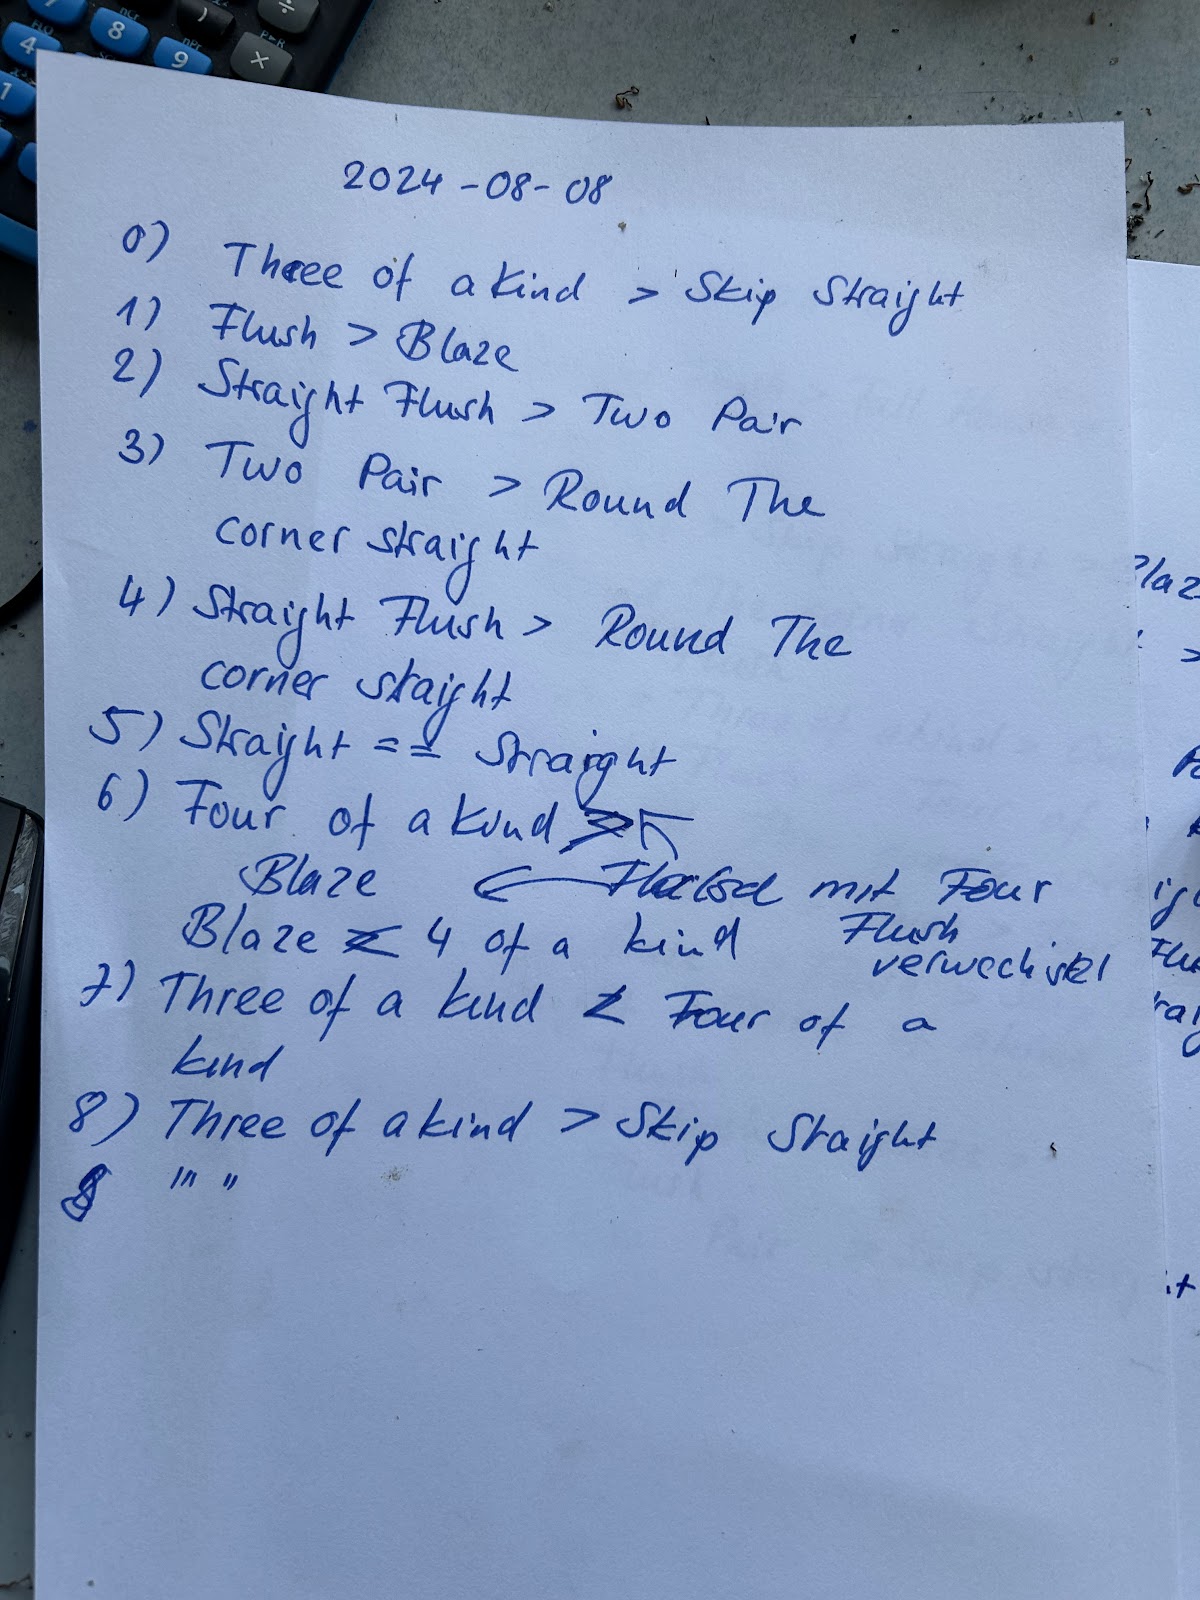 2024-08-08
0) Three of a kind > Skip Straight
1) Flush > Blaze
2) Straight Flush > Two Pair
3) Two Pair > Round The
corner straight
4) Straight Flush > Round The
corner staight
5) Straight == Straight
6) Four of a kind >
Blaze mit Four
Flush
verwechselt
Blaze < 4 of a kind
7) Three of a kind < Four of a
kind
8) Three of a kind > Skip Staight
"" "
8
9
4
1
nCr
nPr